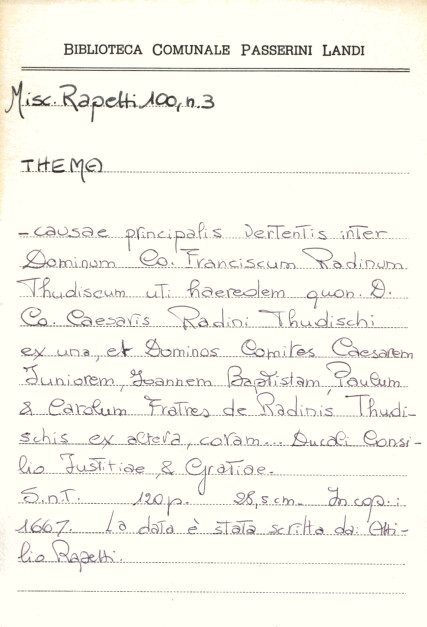 BIBLIOTECA COMUNALE PASSERINI LANDI
Misc. Rapetti 100, n. 3
THEMA
- causae principalis vertentis inter
Dominum Co. Franciscum Radinum
Thudiscum uti haeredem quon. D.
Co. Caesaris Radini Thudischi
ex una, et Dominos Comites Caesarem
Juniorem, Joannem Baptistam, Paulum
& Carolum Fratres de Radinis Thudi-
schis ex altera, coram... Ducali Consi-
lio Justitiae, & Gratiae.
S.n.T. 120 p. 28,5 cm. In cop.:
1667. La data è stata scritta da: Atti-
lio Rapetti.